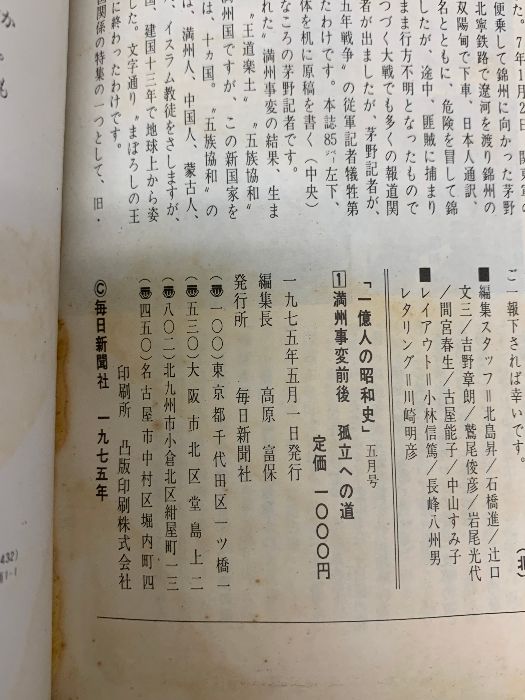 た。7年1月2日、関東軍の
便乗して錦州に向かった茅野
北寧鉄路で遼河を渡り錦州の
双陽甸で下車、日本人通訳、
名とともに、危険を冒して錦
したが、途中、匪賊に捕まり
まま行方不明となったもので
つづく大戦でも多くの報道関
者が出ましたが、茅野記者が、
五年戦争〟の従軍記者犠牲第
たわけです。本誌85ページ左下、
体を机に原稿を書く(中央)
なころの茅野記者です。
れた〝満州事変の結果、生ま
〝王道楽土〟〝五族協和〟
満州国ですが、この新国家を
は、十ヵ国。〝五族協和〟の
は、満州人、中国人、蒙古人、
、イスラム教徒をさしますが、
国、建国十三年で地球上から姿
した。文字通り〝まぼろしの王
に終わったわけです。
国関係の特集の一つとして、旧・
ご一報下されば幸いです。
(北
■編集スタッフ=北島昇/石橋進/辻口
文三/吉野章朗/鷲尾俊彦/岩尾光代
/間宮春生/古屋能子/中山すみ子
■レイアウト=小林信篤/長峰八州男
レタリング=川崎明彦
「一億人の昭和史」五月号
1満州事変前後 孤立への道
定価 一〇〇〇円
一九七五年五月一日発行
編集長 高原富保
発行所 毎日新聞社
(〒一〇〇)東京都千代田区一ツ橋一
(〒五三〇)大阪市北区堂島上二
(〒八〇二)北九州市小倉北区紺屋町一三
(〒四五〇)名古屋市中村区堀内町四
印刷所 凸版印刷株式会社
©毎日新聞社 一九七五年
432)